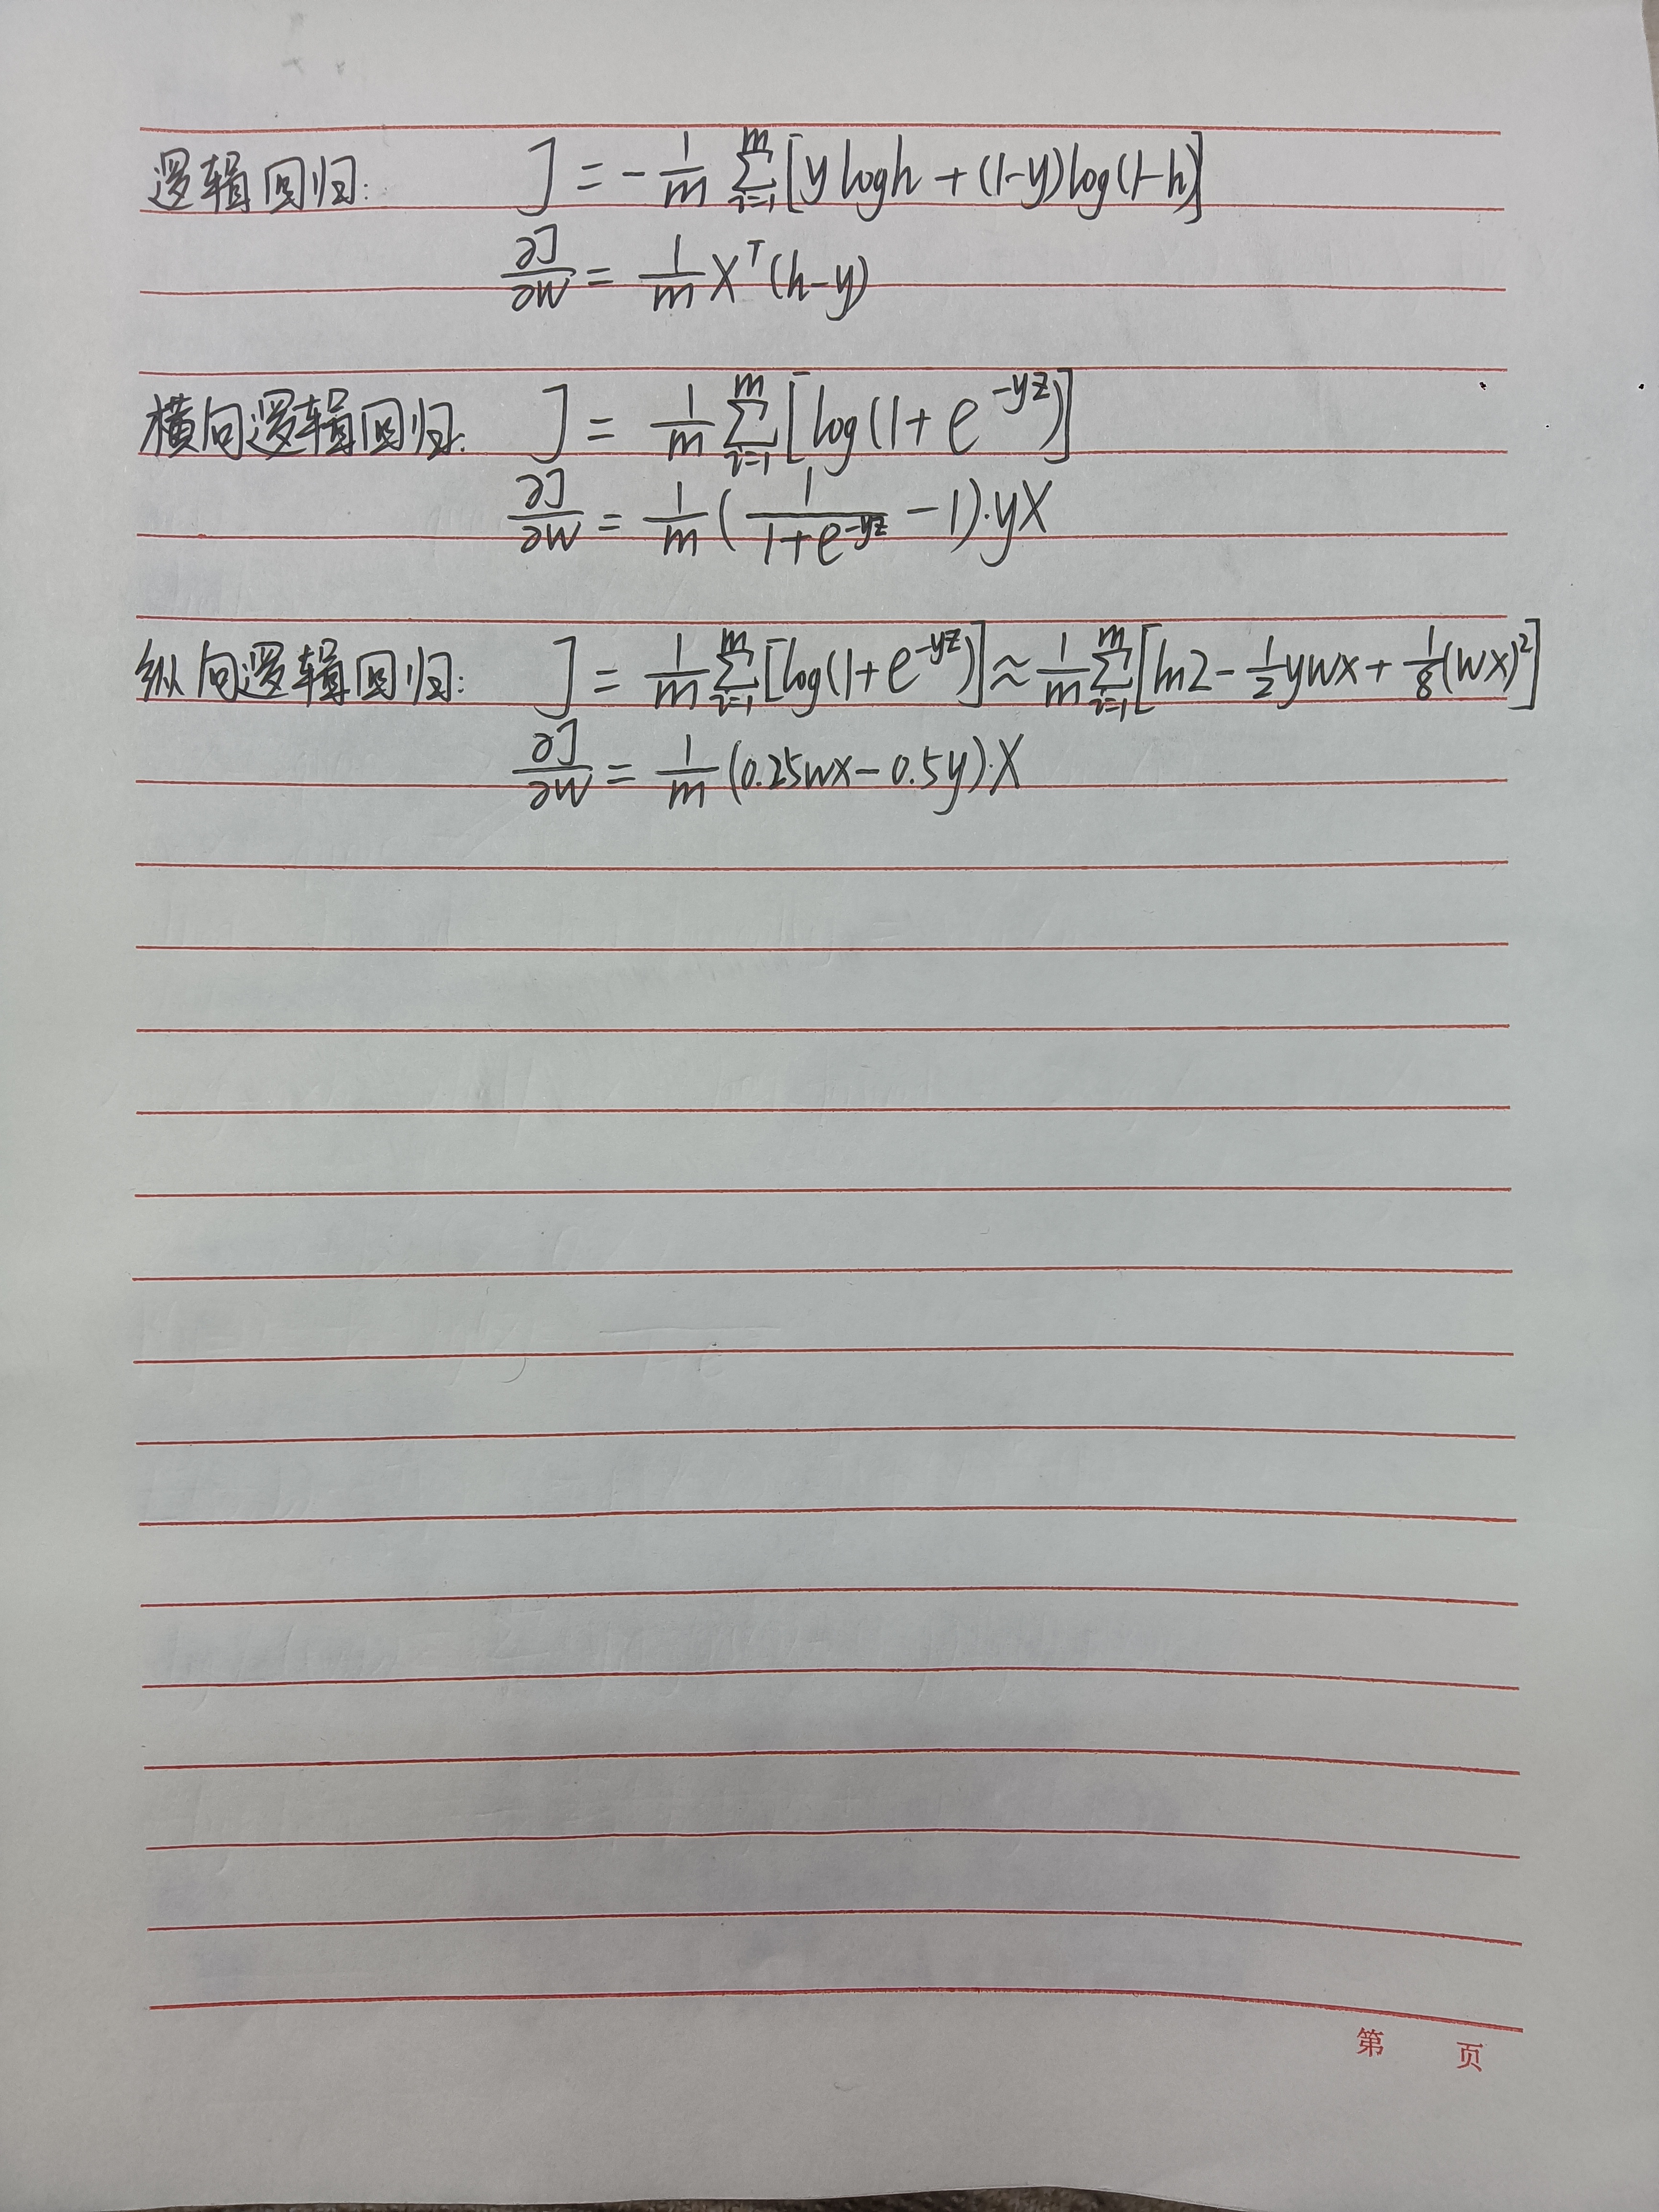 逻辑回归: J = -1/m Σ_{i=1}^{m} [y log h + (1-y) log(1-h)]
∂J/∂W = 1/m X^T (h-y)
横向逻辑回归: J = 1/m Σ_{i=1}^{m} [log(1+e^{-yz})]
∂J/∂W = 1/m (1/(1+e^{-yz}) - 1)·yX
纵向逻辑回归: J = 1/m Σ_{i=1}^{m} [log(1+e^{-yz})] ≈ 1/m Σ_{i=1}^{m} [ln2 - 1/2 ywx + 1/8 (wx)^2]
∂J/∂W = 1/m (0.25wx - 0.5y)·X
第 页